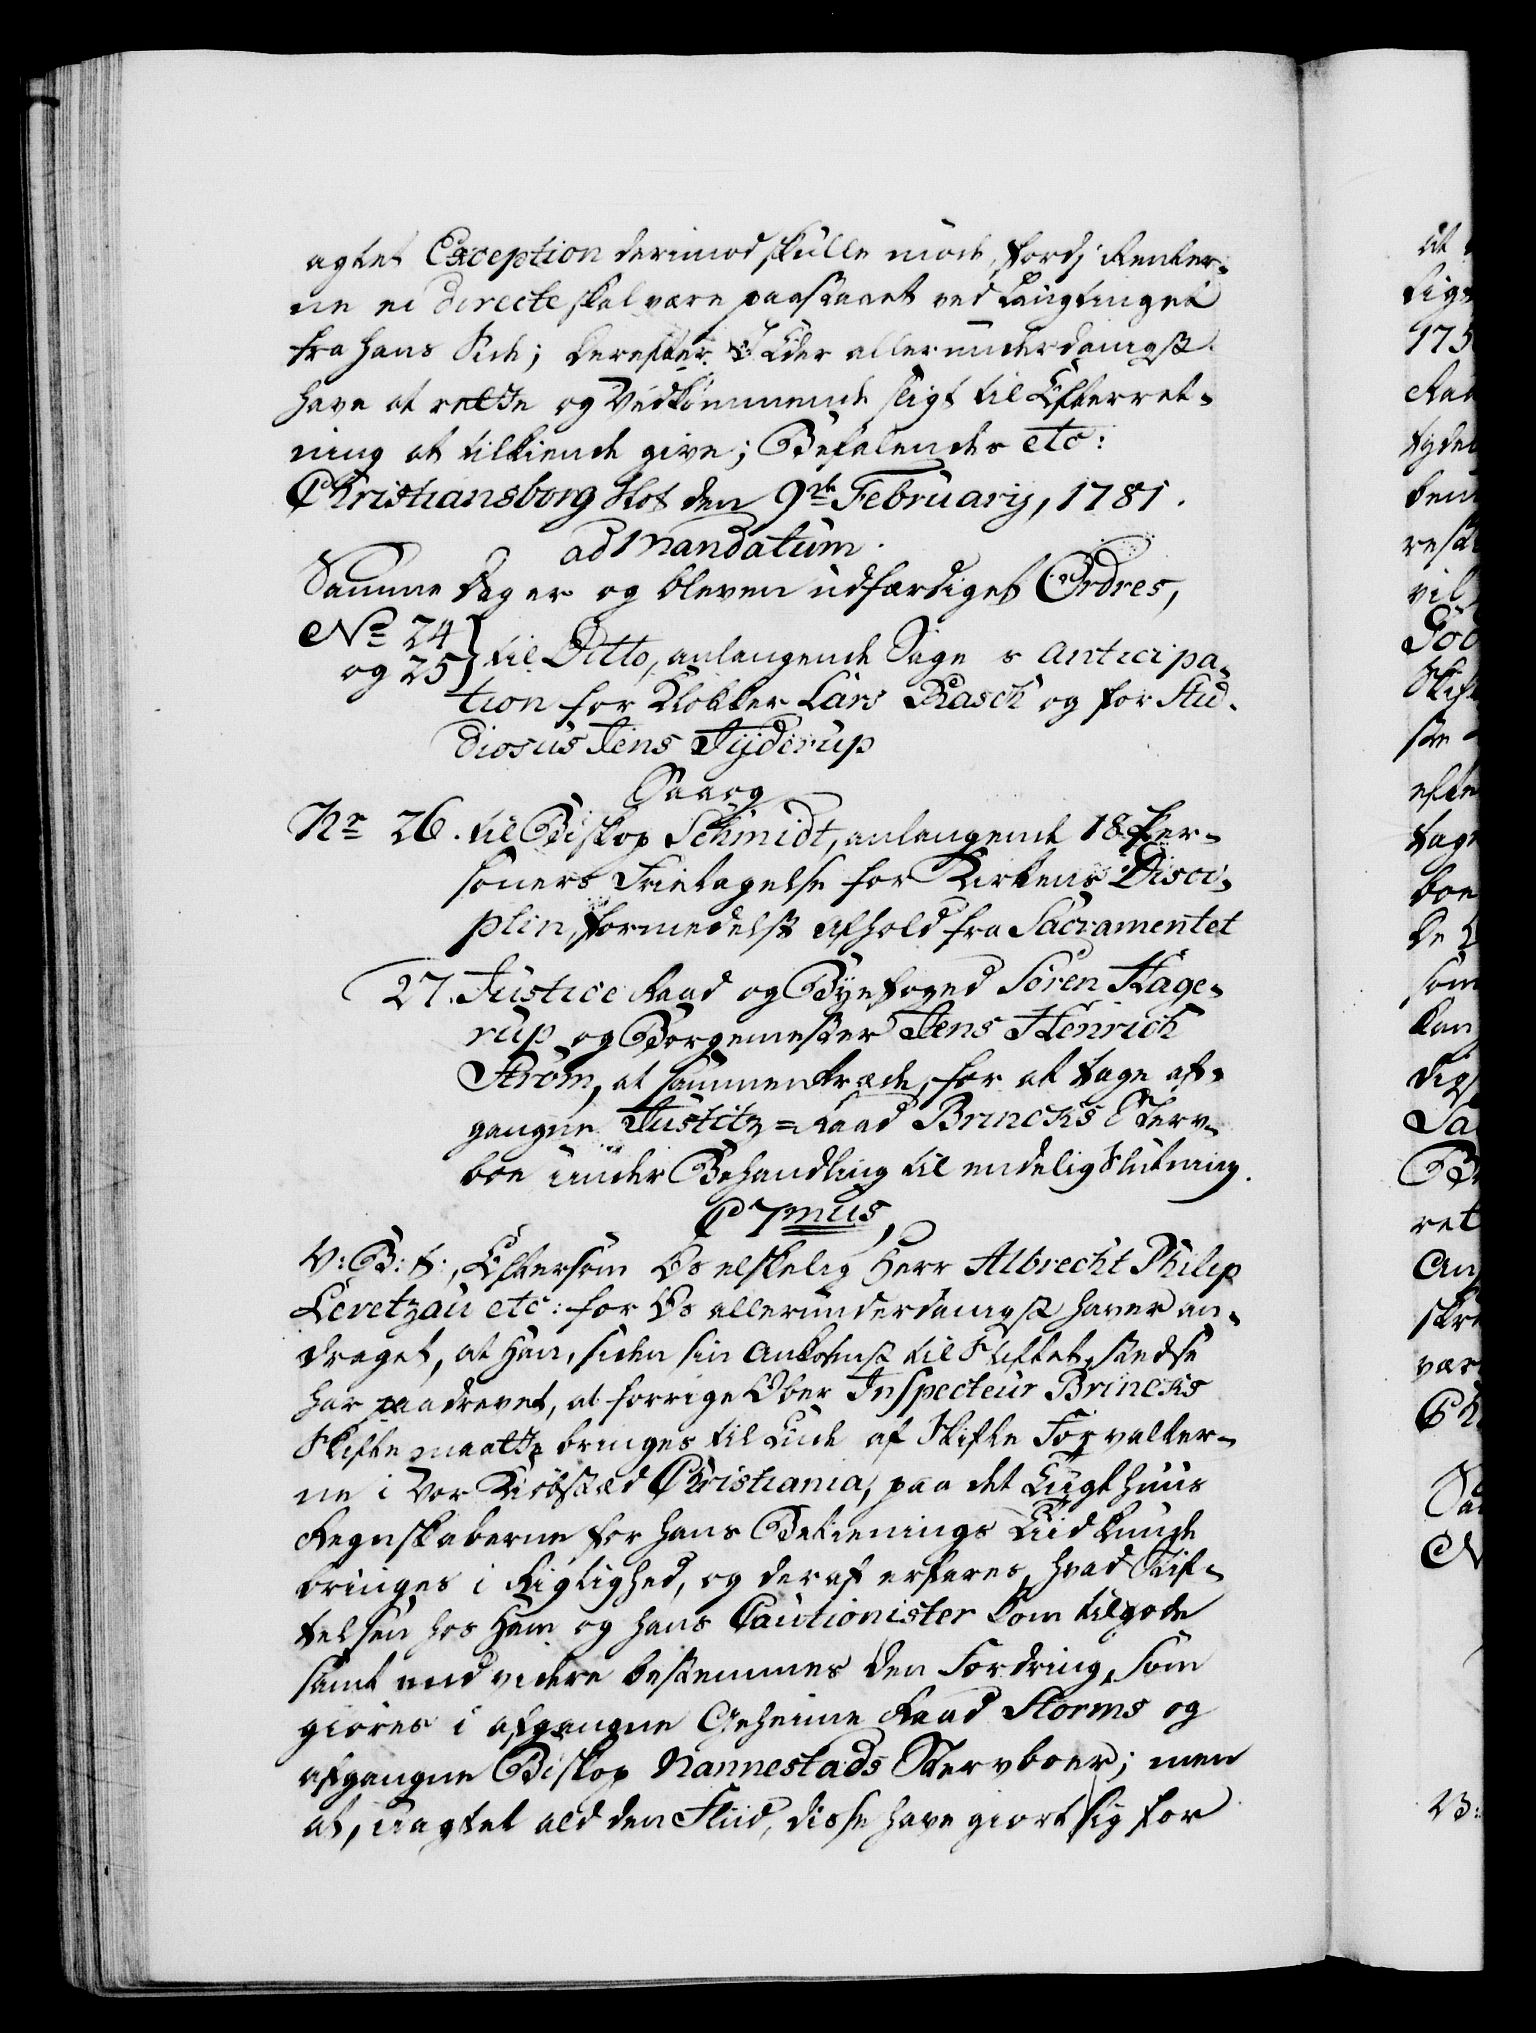 agtet Exception derimod skulle møde, fordj Renter-
ne ei directe skal være paastaaet ved Laugtinget
fra hans Side; derefter I Eder allerunderdanigst
have at rette og Vedkommende sligt til Efterret-
ning at tilkiende give; Befalendes etc:
Christiansborg Slot den 9de February, 1781.
ad Mandatum.
Samme Dag er og bleven udfærdiget Ordres,
No 24
og 25 } til Ditto, anlangende Sags Anticipa-
tion for Klokker Lars Rasch og for Stu-
diosus Jens Tyderup
Saaog
Nr 26. til Biskop Schmidt, anlangende 18 Per-
soners Fritagelse for Kirkens Disci-
plin, formedelst Afhold fra Sacramentet
27. Justice Raad og Byefoged Søren Hage-
rup og Borgemester Jens Henrich
Strøm, at sammentræde, for at tage af-
gangne Justitz=Raad Brincks Sterv-
boe under Behandling til endelig Slutning.
C 7mus,
V: B: t:, Eftersom Os elskelig Herr Albrecht Philip
Levetzau etc: for Os allerunderdanigst haver an-
draget, at Han, siden sin Ankomst til Stiftet, stedse
har paadrevet, at forrige Ober Inspecteur Brincks
Skifte maatte bringes til Ende af Skifte Forvalter-
ne i Vor Kiøbstæd Christiania, paa det Tugthuus
Regnskaberne for hans Betienings Tiid kunde
bringes i Rigtighed, og deraf erfares, hvad Stif-
telsen hos Ham og hans Cautionister kom tilgode
samt end videre bestemmes den Fordring, som
giøres i afgangne Geheime Raad Storms og
afgangne Biskop Nannestads Stervboer; men
at, uagtet ald den Fliid, disse have giort sig for